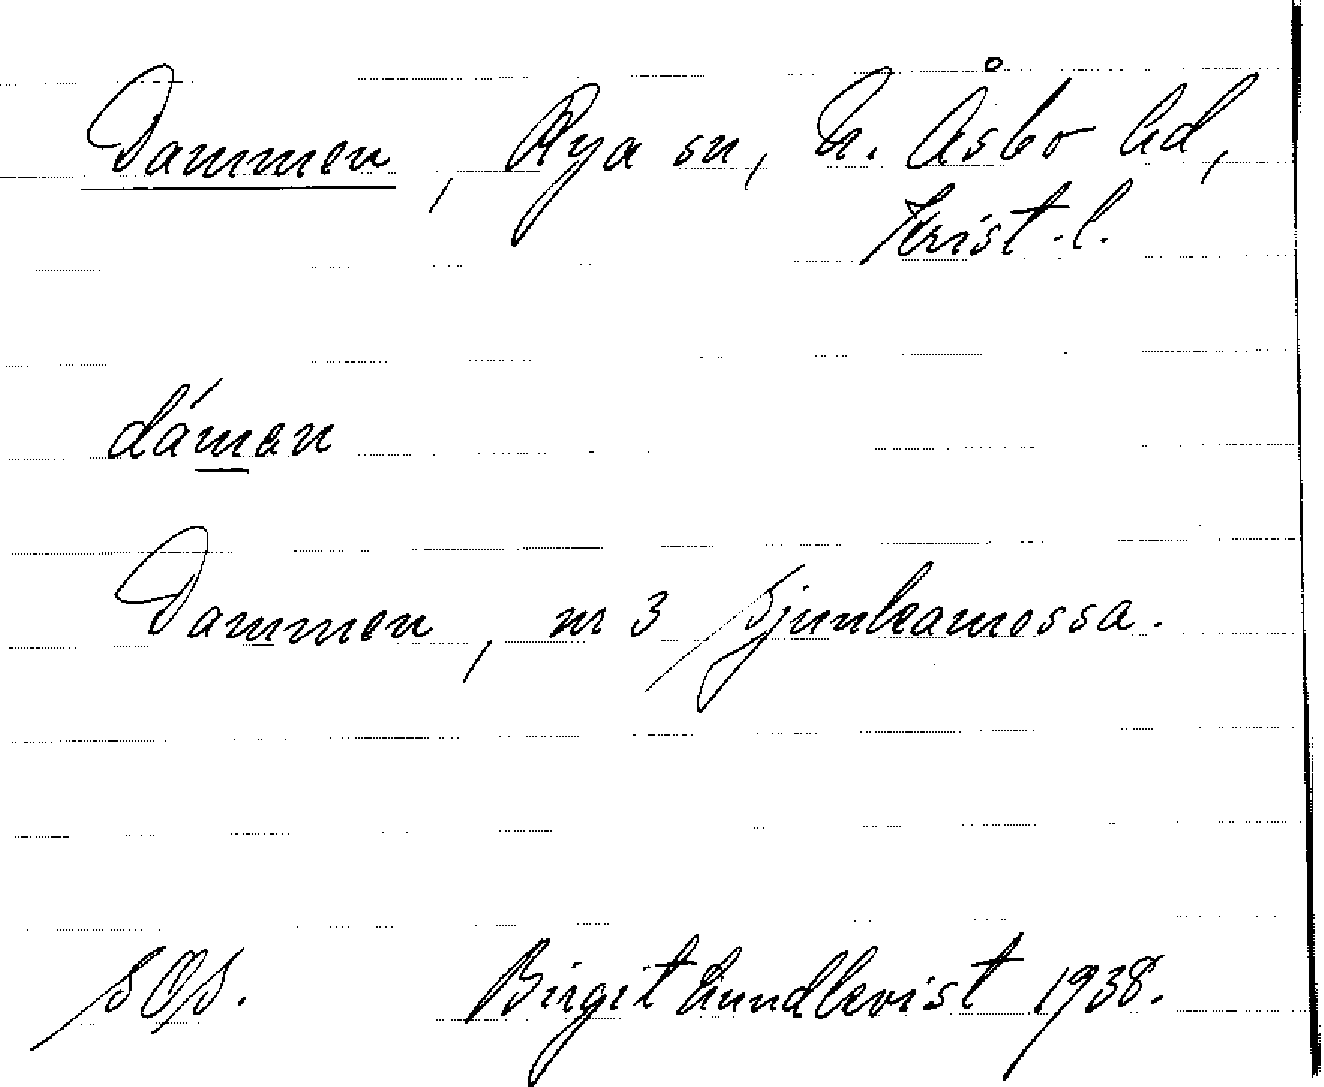 Dammen, Rya sn, N. Åsbo hd,
Krist. l.
dáman
Dammen, nr 3 Sjunkamossa.
SOS. Birgit Lundkvist 1938.